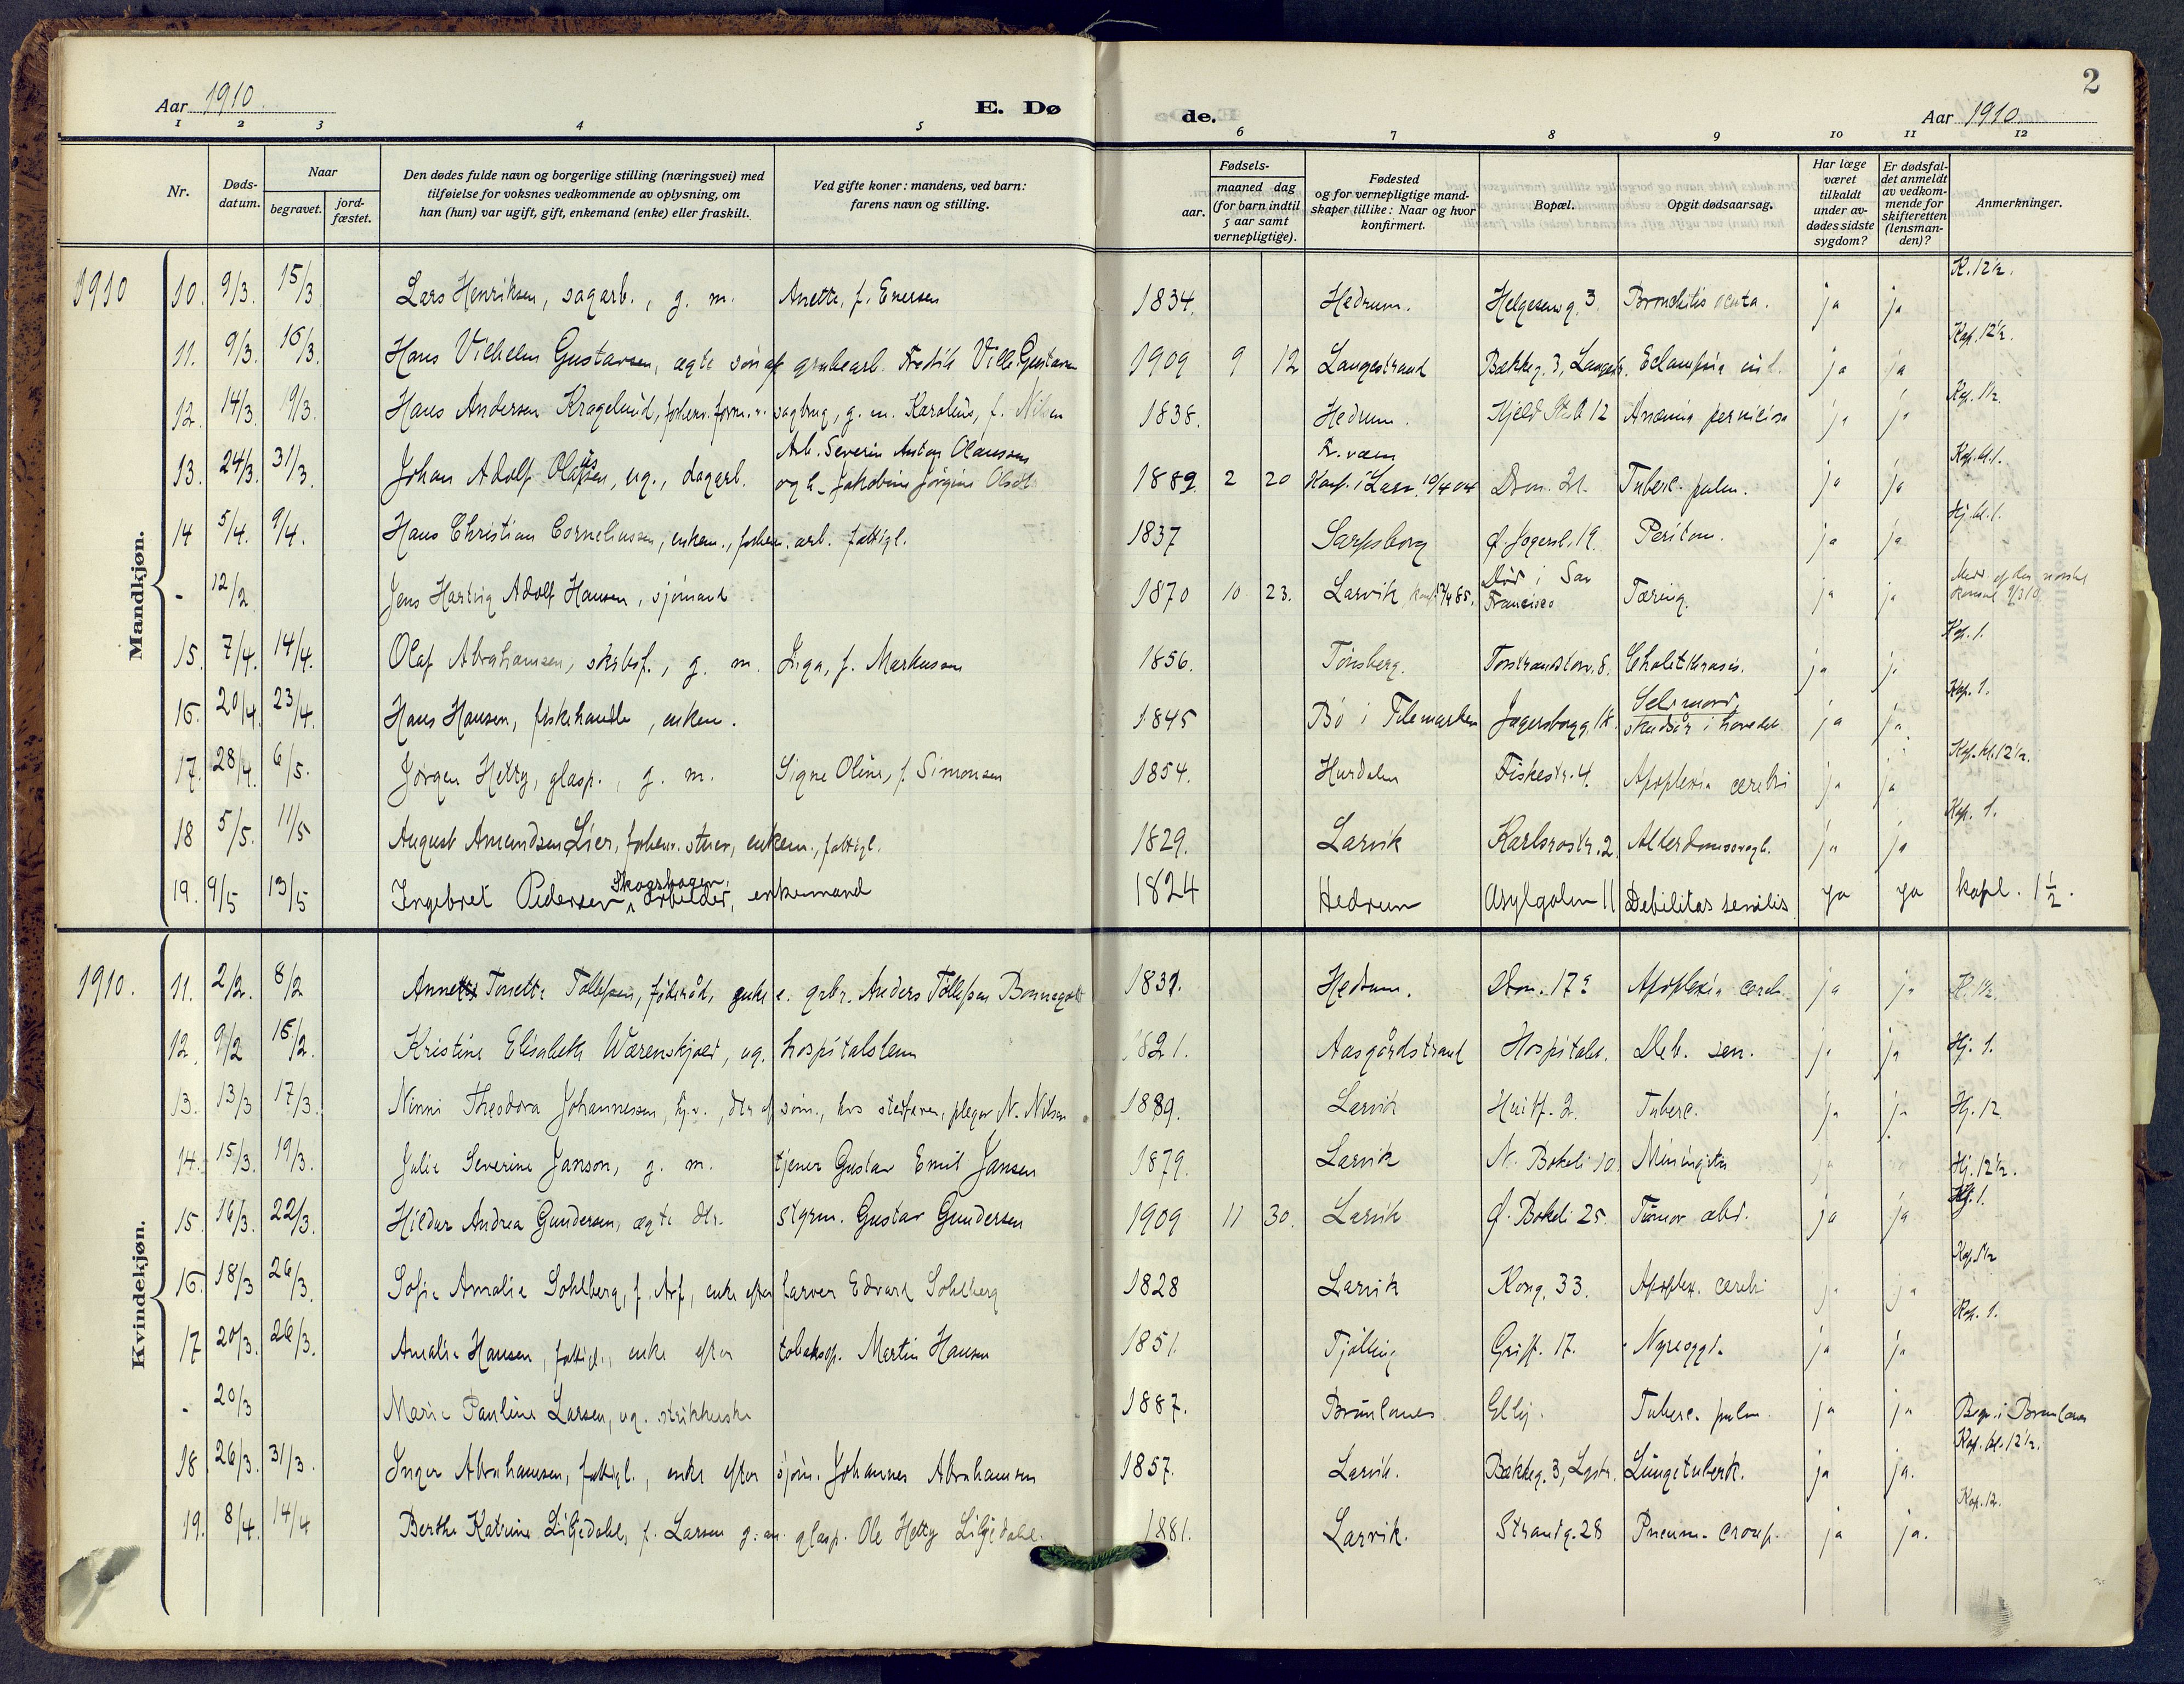 2
Aar 1910 E. Dø de. Aar 1910.
1 2 3 4 5 6 7 8 9 10 11 12
Nr. Døds-datum. Naar begravet. jord-fæstet. Den dødes fulde navn og borgerlige stilling (næringsvei) med tilføielse for voksnes vedkommende av oplysning, om han (hun) var ugift, gift, enkemand (enke) eller fraskilt. Ved gifte koner: mandens, ved barn: farens navn og stilling. Fødsels- aar. maaned dag (for barn indtil 5 aar samt vernepligtige). Fødested og for vernepligtige mand-skaper tillike: Naar og hvor konfirmert. Bopæl. Opgit dødsaarsag. Har læge været tilkaldt under av-dødes sidste sygdom? Er dødsfal-det anmeldt av vedkom-mende for skifteretten (lensman-den)? Anmerkninger.
Mandkjøn.
1910 10. 9/3. 15/3 Lars Henriksen, sagarb., g. m. Anette, f. Enersen 1834. Hedrum. Helgesensg. 3. Bronchitis acuta. ja ja K. 12½.
11. 9/3. 16/3. Hans Vilhelm Gustavsen, ægte søn af grubearb. Fredrik Vilh. Gustavsen 1909 9 12 Langestrand Bækkeg. 3, Langestr. Eclampsia inf. ja ja Kap. 12½.
12. 14/3. 19/3. Hans Andersen Kragelund, forhenv. form. v. sagbrug, g. m. Karoline, f. Nilsen 1838. Hedrum. Kjeld St. g. 12 Anæmia perniciosa ja ja Kap. 1½.
13. 24/3. 31/3. Johan Adolf Olausen, ug., dagarb. Arb. Severin Anton Olaussen og h. Jakobine Jørgine Olsdtr. 1889. 2 20 Fr.værn Konf. i Larv. 10/4 04 Dron. 21. Tuberc. pulm. ja ja Kap. kl. 1.
14 5/4. 9/4. Hans Christian Corneliussen, enkem., forhenv. arb. fattigl. 1837 Sarpsborg Ø. Jegersb. 19. Periton. ja ja Hj. kl. 1.
- 12/2 Jens Hartvig Adolf Hansen, sjømand 1870 10 23. Larvik, konf. 12/4 85. Død i San Francisco Tæring. ja ja Medd. af den norske konsul 9/3 10
15. 7/4. 14/4. Olaf Abrahamsen, skibsf., g. m. Inga, f. Markussen 1856. Tønsberg. Torstrandtorv. 8. Cholelithiasis. ja ja Kap. 1.
16. 20/4. 23/4. Hans Hansen, fiskehandler, enkem. 1845 Bø i Telemarken Jegersborgg. 18. Selvmord, skudsår i hovedet. ja ja Kap. 1.
17. 28/4. 6/5. Jørgen Hetty, glasp., g. m. Signe Oline, f. Simonsen 1854. Hurdalen Fiskestr. 4. Apoplexia cerebri ja ja Kap. kl. 12½.
18 5/5. 11/5 August Amundsen Lier, forhenv. stuer, enkem., fattigl. 1829. Larvik Karlsrostr. 2. Alderdomssvagh. ja ja Kap. 1.
19. 9/5 13/5 Ingebret Pedersen Skogshagen, arbeider, enkemand 1824 Hedrum Asylgaden 11 Debilitas senilis ja ja kapl. 1½.
Kvindekjøn.
1910. 11. 2/2. 8/2 Annette Tonette Tollefsen, føderåd, enke e. grbr. Anders Tollefsen Bonnegolt 1831. Hedrum. Dron. 17a Apoplexia cereb. ja ja K. 1½.
12. 9/2 16/2. Kristine Elisabeth Wærenskjold, ug. hospitalslem 1821. Aasgårdstrand Hospitalet. Deb. sen. ja ja Hj. 1.
13. 13/3 17/3. Ninni Theodora Johannessen, hj.v., dtr. af søm., hos stedfaren, pleger N. Nilsen 1889. Larvik Huitf. 2. Tuberc. ja ja Hj. 12
14. 15/3. 19/3. Julie Severine Janson, g. m. tjener Gustav Emil Jansen 1879. Larvik N. Bøkeli 10 Meningitis ja Hj. 12½.
15. 16/3. 22/3. Hildur Andrea Gundersen, ægte dtr. styrm. Gustav Gundersen 1909 11 30. Larvik Ø. Bøkeli 25. Tumor abd. ja ja Hj. 1.
16. 18/3 26/3. Sofie Amalie Sohlberg, f. Arf, enke efter farver Edvard Sohlberg 1828 Larvik Kong. 33. Apoplex. cerebri ja ja Kap. 1½
17 20/3. 26/3. Amalie Hansen, fattigl., enke efter tobaksp. Martin Hansen 1851. Tjølling Griff. 17. Nyresygd. ja ja Kap. 1.
- 20/3 Marie Pauline Larsen, ug. strikkerske 1887. Brunlanes Ellij. Tuberc. pulm. ja ja Begr. i Brunlanes
18 26/3. 31/3. Inger Abrahamsen, fattigl., enke efter sjøm. Johannes Abrahamsen 1857. Larvik. Bækkeg. 3, Lgstr. Lungetuberk. ja ja. Kap. kl. 12½.
19. 8/4. 14/4 Berthe Katrine Liljedahl, f. Larsen g. m. glasp. Ole Hetty Liljedahl. 1881. Larvik. Strandg. 28 Pneum. croup. ja ja. Kap. 12.